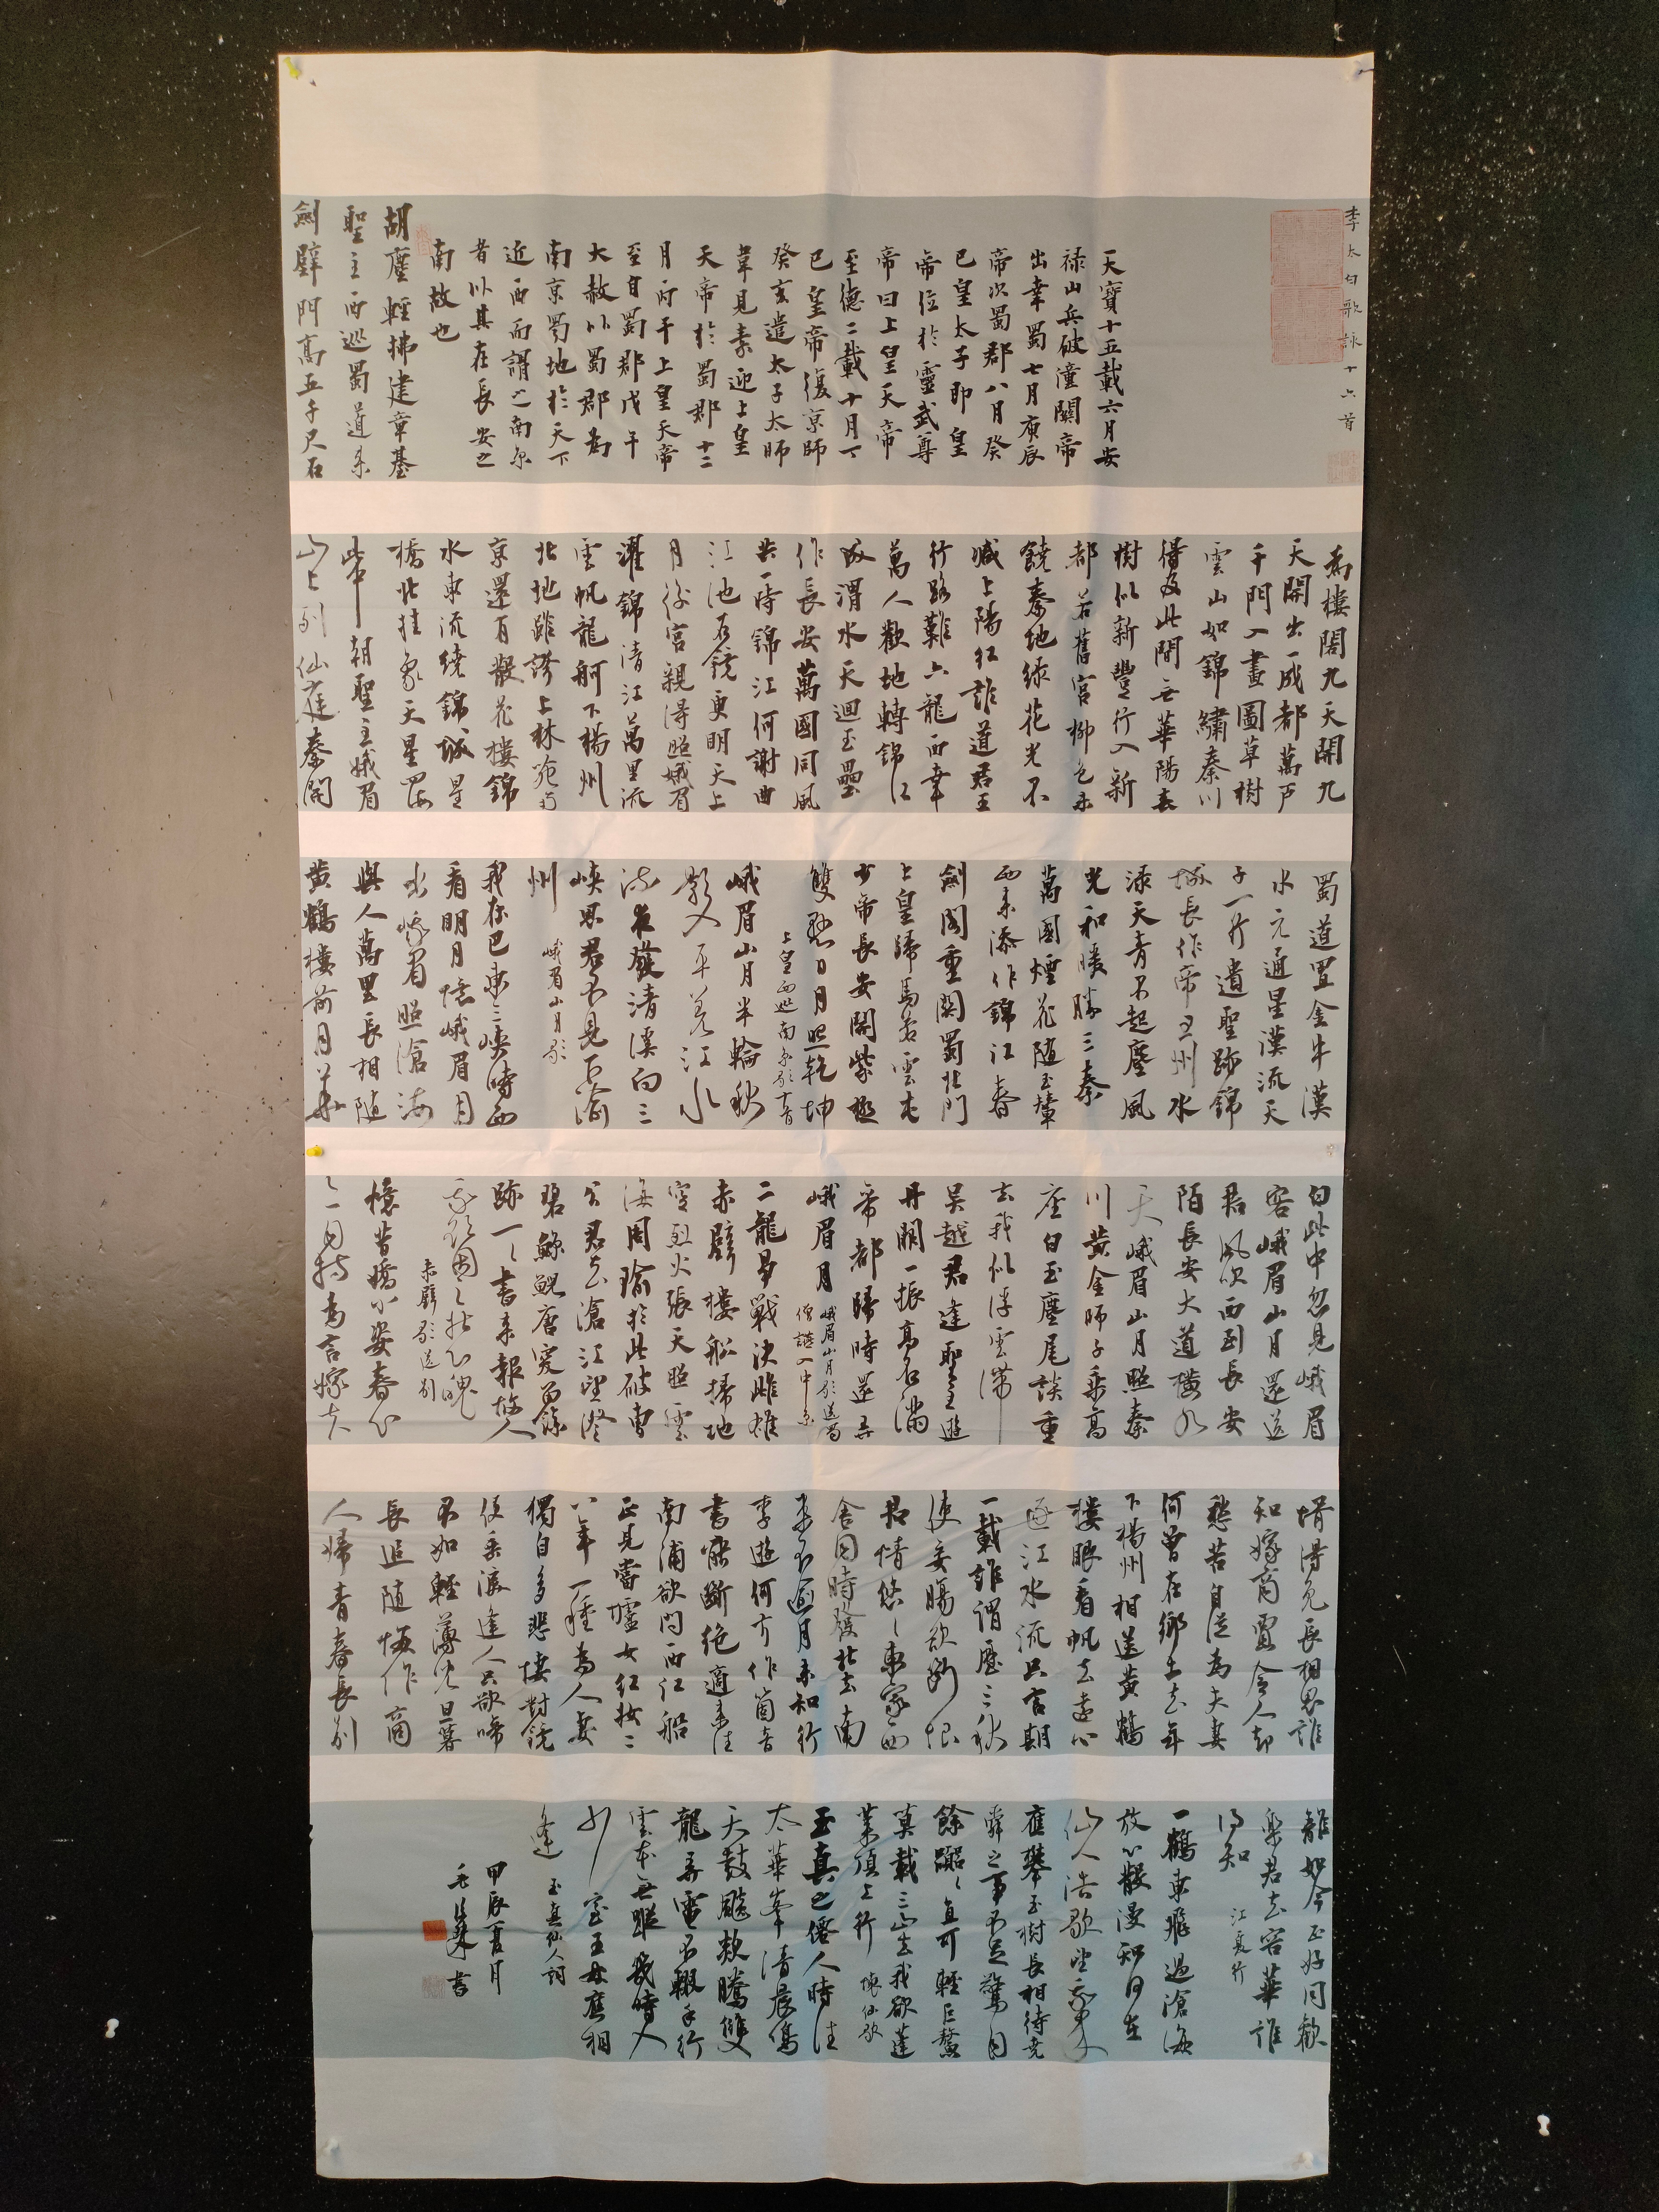 李太白歌詠十六首
天寶十五載六月安
禄山兵破潼關帝
出幸蜀七月庚辰
帝次蜀郡八月癸
巳皇太子即皇
帝位於靈武尊
帝曰上皇天帝
至德二載十月丁
巳皇帝復京師
癸亥遣太子太師
韋見素迎上皇
天帝於蜀郡十二
月丙午上皇天帝
至自蜀郡戊午
大赦以蜀郡為
南京蜀地於天下
近西而謂之南京
者以其在長安之
南故也
胡塵輕拂建章基
聖主西巡蜀道來
劍壁門高五千尺石
為樓閣九天開九
天開出一成都萬户
千門入畫圖草樹
雲山如錦繡秦川
得及此間無華陽春
樹似新豐行入新
都若舊宮柳色未
饒秦地綠花光不
減上陽紅誰道君王
行路難六龍西幸
萬人歡地轉錦江
成渭水天迴玉壘
作長安萬國同風
共一時錦江何謝曲
江池石鏡更明天上
月後宮親得照娥眉
濯錦清江萬里流
雲帆龍舸下楊州
北地雖誇上林苑南
京還有散花樓錦
水東流繞錦城星
橋北挂象天星四海
此中朝聖主娥眉
山上列仙庭秦開
蜀道置金牛漢
水元通星漢流天
子一行遺聖跡錦
城長作帝王州水
淥天青不起塵風
光和暖勝三秦
萬國煙花隨玉輦
西來添作錦江春
劍閣重關蜀北門
上皇歸馬若雲屯
少帝長安開紫極
雙懸日月照乾坤
上皇西巡南京歌十首
峨眉山月半輪秋
影入平羌江水
流夜發清溪向三
峽思君不見下渝
州 峨眉山月歌
我在巴東三峽時西
看明月憶峨眉月
出峨眉照滄海
與人萬里長相隨
黃鶴樓前月華
白此中忽見峨眉
客峨眉山月還送
君風吹西到長安
陌長安大道橫九
天峨眉山月照秦
川黃金師子乘高
座白玉麈尾談重
玄我似浮雲滯
吳越君逢聖主遊
丹闕一振高名滿
帝都歸時還弄
峨眉月 峨眉山月歌送蜀
僧晏入中京
二龍爭戰決雌雄
赤壁樓船掃地
空烈火張天照雲
海周瑜於此破曹
公君去滄江望澄
碧鯨鯢唐突留餘
跡一一書來報故人
我欲因之壯心魄
赤壁歌送別
憶昔嬌小姿春心
亦自持為言嫁夫
壻得免長相思誰
知嫁商賈令人却
愁苦自從為夫妻
何曾在鄉土去年
下楊州相送黃鶴
樓眼看帆去遠心
逐江水流只言期
一載誰謂歷三秋
使妾腸欲斷恨
君情悠悠東家西
舍同時發北去南
來不逾月未知行
李遊何方作箇音
書能斷絕適來往
南浦欲問西江船
正見當壚女紅妝二
八年一種為人妻
獨自多悲悽對鏡
便垂淚逢人只欲啼
不如輕薄兒旦暮
長追隨悔作商
人婦青春長別
離如今正好同歡
樂君去容華誰
得知 江夏行
一鶴東飛過滄海
放心散漫知何在
仙人浩歌望我來
應攀玉樹長相待堯
舜之事不足驚自
餘囂囂直可輕巨鰲
莫載三山去我欲蓬
萊頂上行 懷仙歌
玉真之僊人時往
太華峯清晨鳴
天鼓飈欻騰雙
龍弄電不輟手行
雲本無蹤幾時入
少室王母應相
逢 玉真仙人詞
甲辰夏月
書